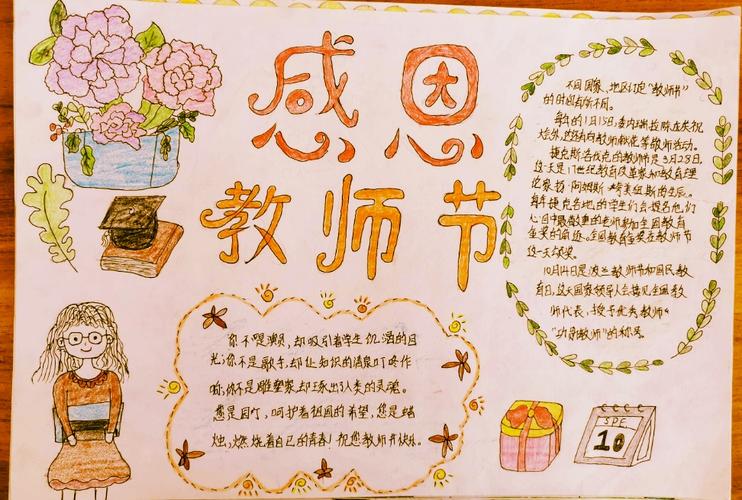 感恩
教师节
不同国家、地区订定"教师节"
的时间有所不同。
每年的1月15日,委内瑞拉除在庆祝
外,还有向教师献花等教师活动。
捷克斯洛伐克的教师是3月28日,
这天是17世纪教育改革家和教育理
论家扬·阿姆斯·夸美纽斯的生辰。
每年捷克各地的学生们会提名他们
心目中最敬重的老师参加全国教育
金奖的角逐。全国教育金奖在教师节
这一天颁奖。
10月14日是波兰教师节和国民教
育日,这天国家领导人会接见全国教
师代表,授予优秀教师
"功勋教师"的称号。
你不是演员,却吸引着学生饥渴的目
光;你不是歌手,却让知识的清泉叮咚作
响,你不是雕塑家,却琢出人类的灵魂。
您是园丁,呵护着祖国的希望,您是蜡
烛,燃烧着自己的青春!祝您教师节快乐.
SPE
10